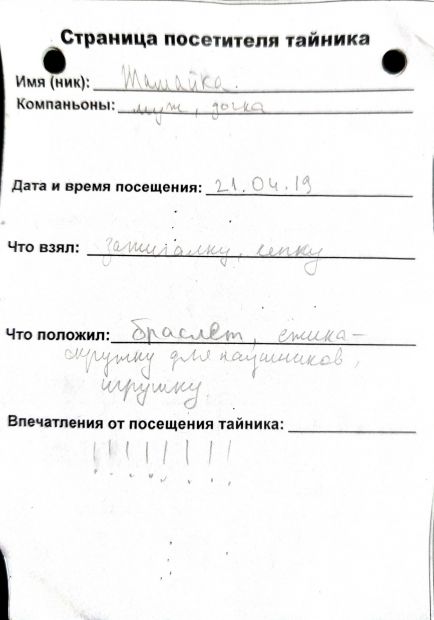 Страница посетителя тайника
Имя (ник): Жамайка.
Компаньоны: муж, дочка
Дата и время посещения: 21.04.19
Что взял: зажигалку, кепку
Что положил: браслет, ёжика-
скрутку для наушников,
игрушку.
Впечатления от посещения тайника:
!!!!!!!!